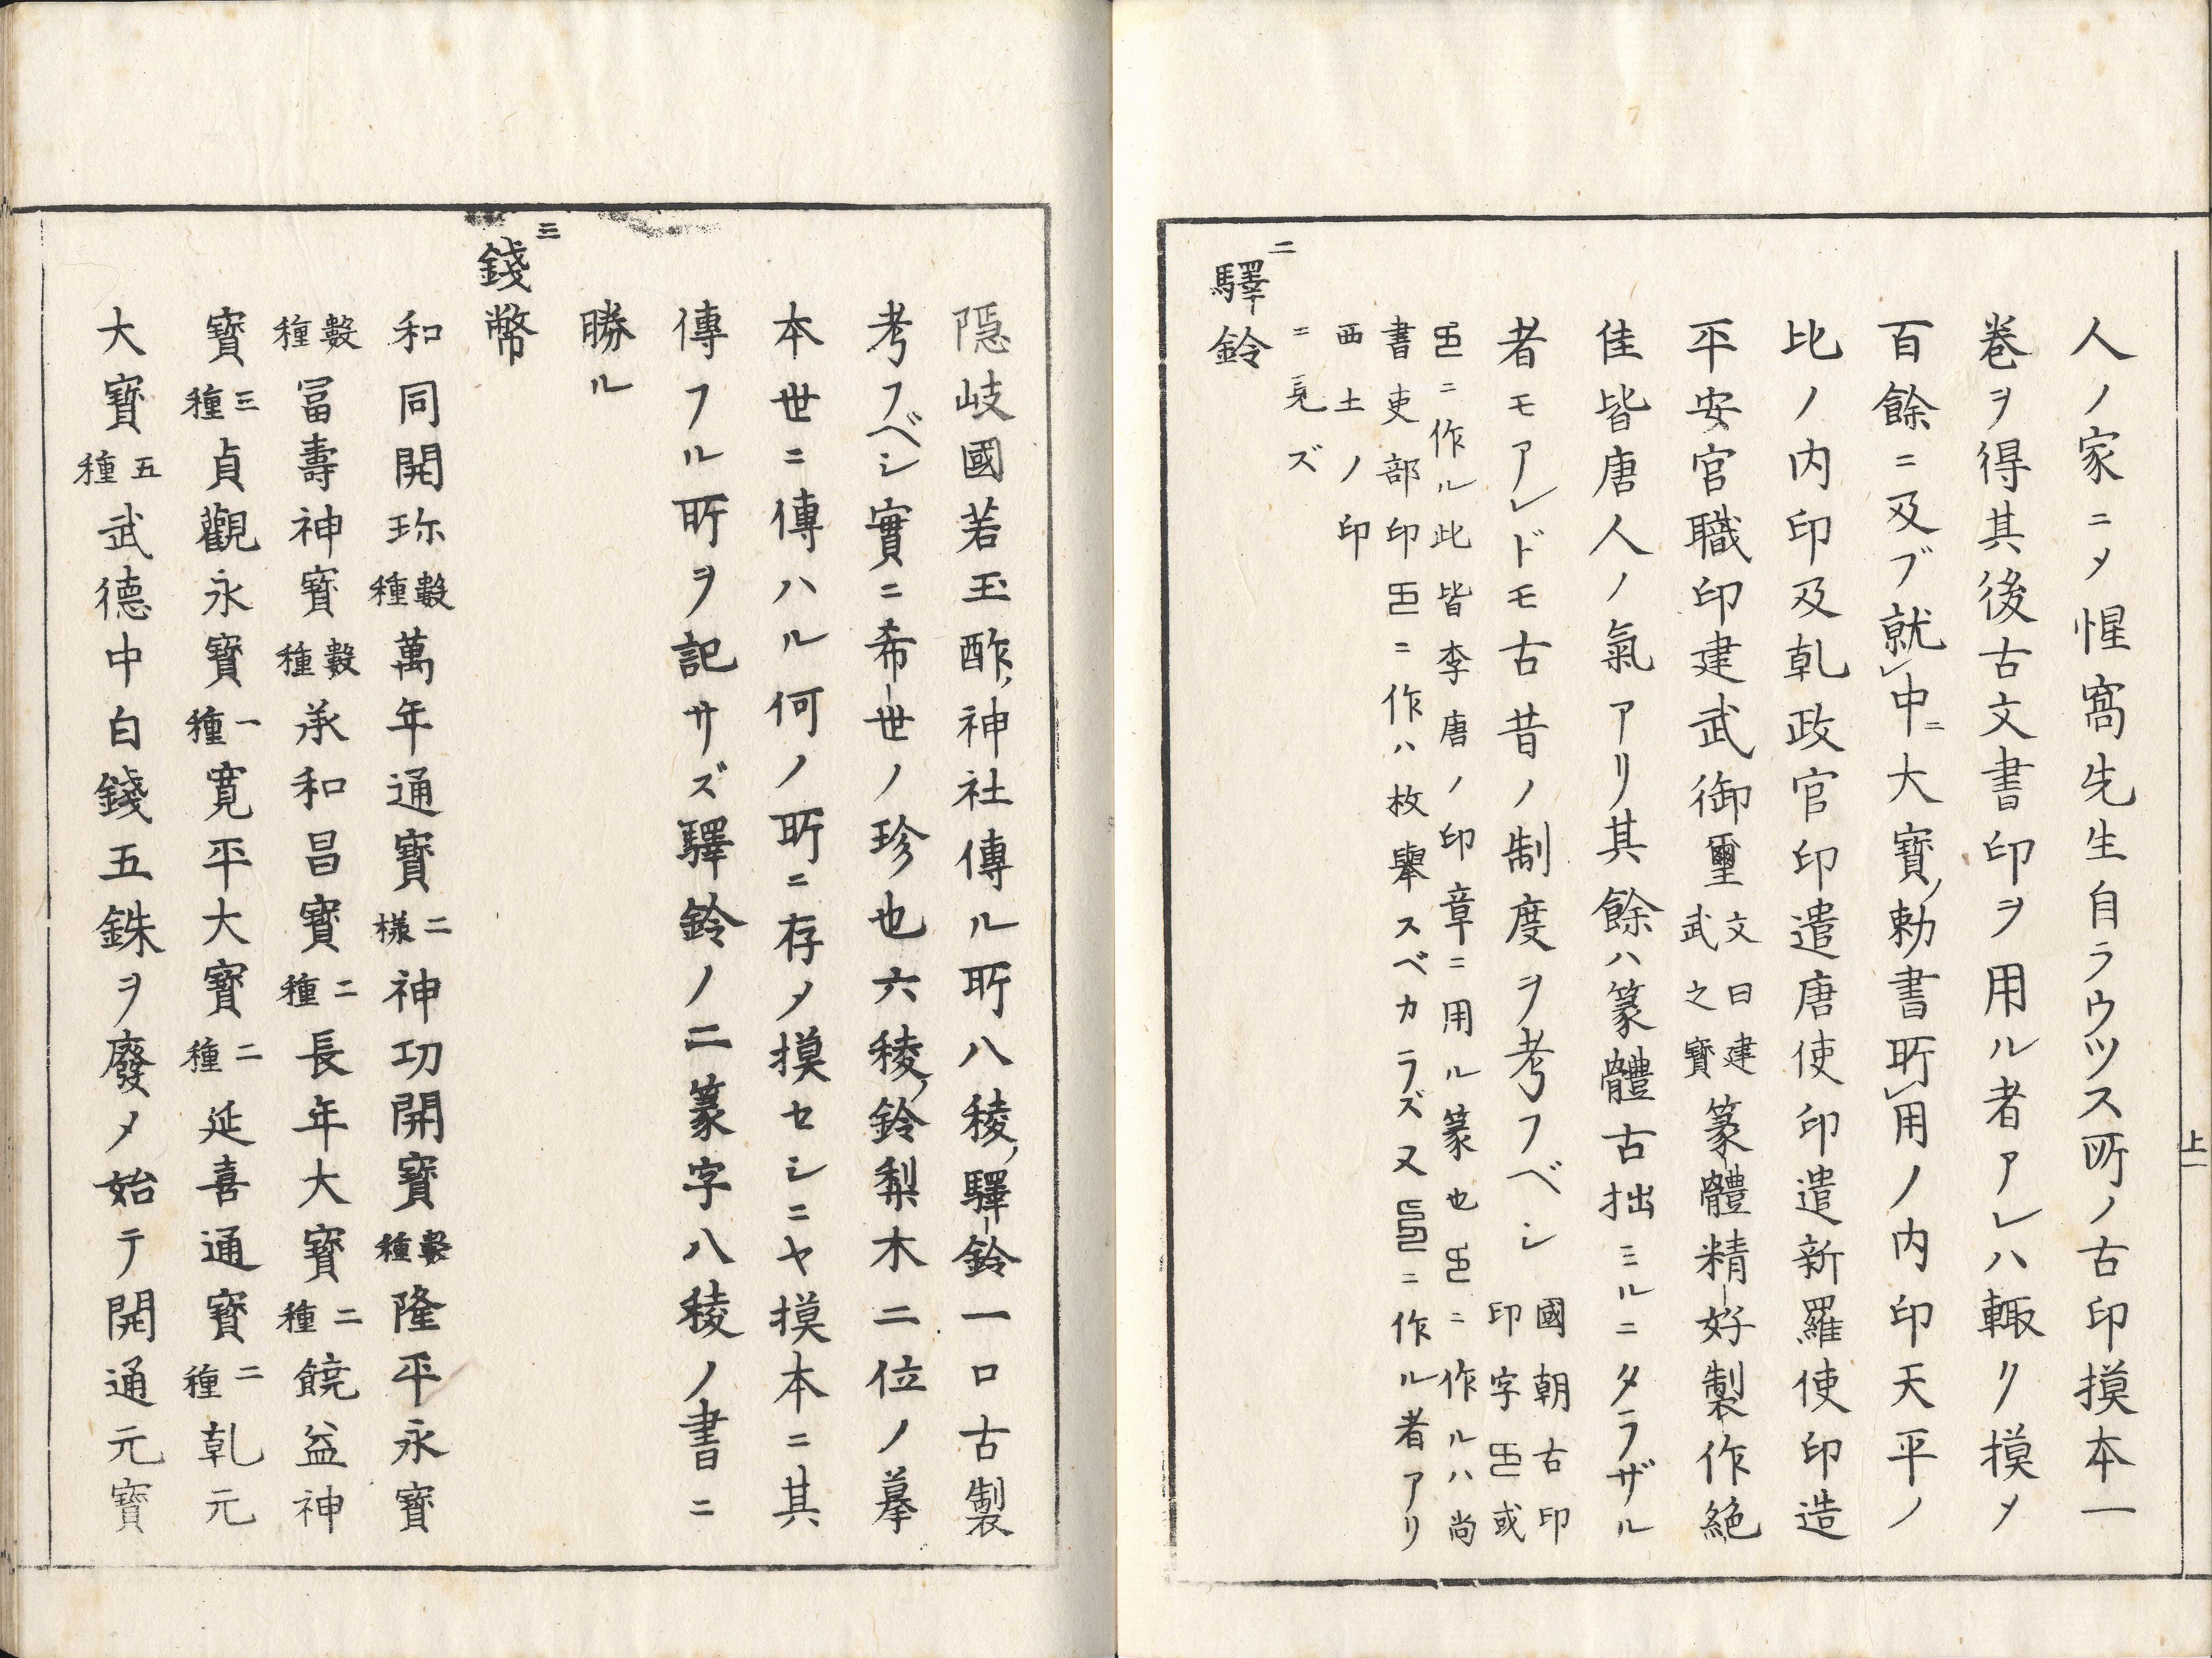 人ノ家ニメ惺窩先生自ラウツス所ノ古印摸本一
巻ヲ得其後古文書印ヲ用ル者アレハ輙リ摸メ
百餘ニ及ブ就中ニ大寳ノ勅書所用ノ内印天平ノ
比ノ内印及乹政官印遣唐使印遣新羅使印造
平安官職印建武御璽
文曰建
武之寳
篆體精好製作絶
佳皆唐人ノ氣アリ其餘ハ篆體古拙ミルニタラザル
者モアレドモ古昔ノ制度ヲ考フベシ
國朝古印
印字或
ニ作ル此皆李唐ノ印章ニ用ル篆也ニ作ルハ尚
書吏部印ニ作ハ枚舉スベカラズ又ニ作ル者アリ
西土ノ印
ニ見ズ
二
驛鈴
上一
隠岐國若玉酢神社傳ル所八稜驛鈴一口古製
考フベシ實ニ希世ノ珍也六稜鈴梨木二位ノ摹
本世ニ傳ハル何ノ所ニ存メ摸セシニヤ摸本ニ其
傳フル所ヲ記サズ驛鈴ノ二篆字八稜ノ書ニ
勝ル
三
錢幣
和同開珎數種萬年通寳二樣神功開寳數種隆平永寳
數種冨壽神寳數種承和昌寳二種長年大寳二種饒益神
寳三種貞觀永寳一種寛平大寳二種延喜通寳二種乹元
大寳五種武德中白錢五銖ヲ廢メ始テ開通元寳